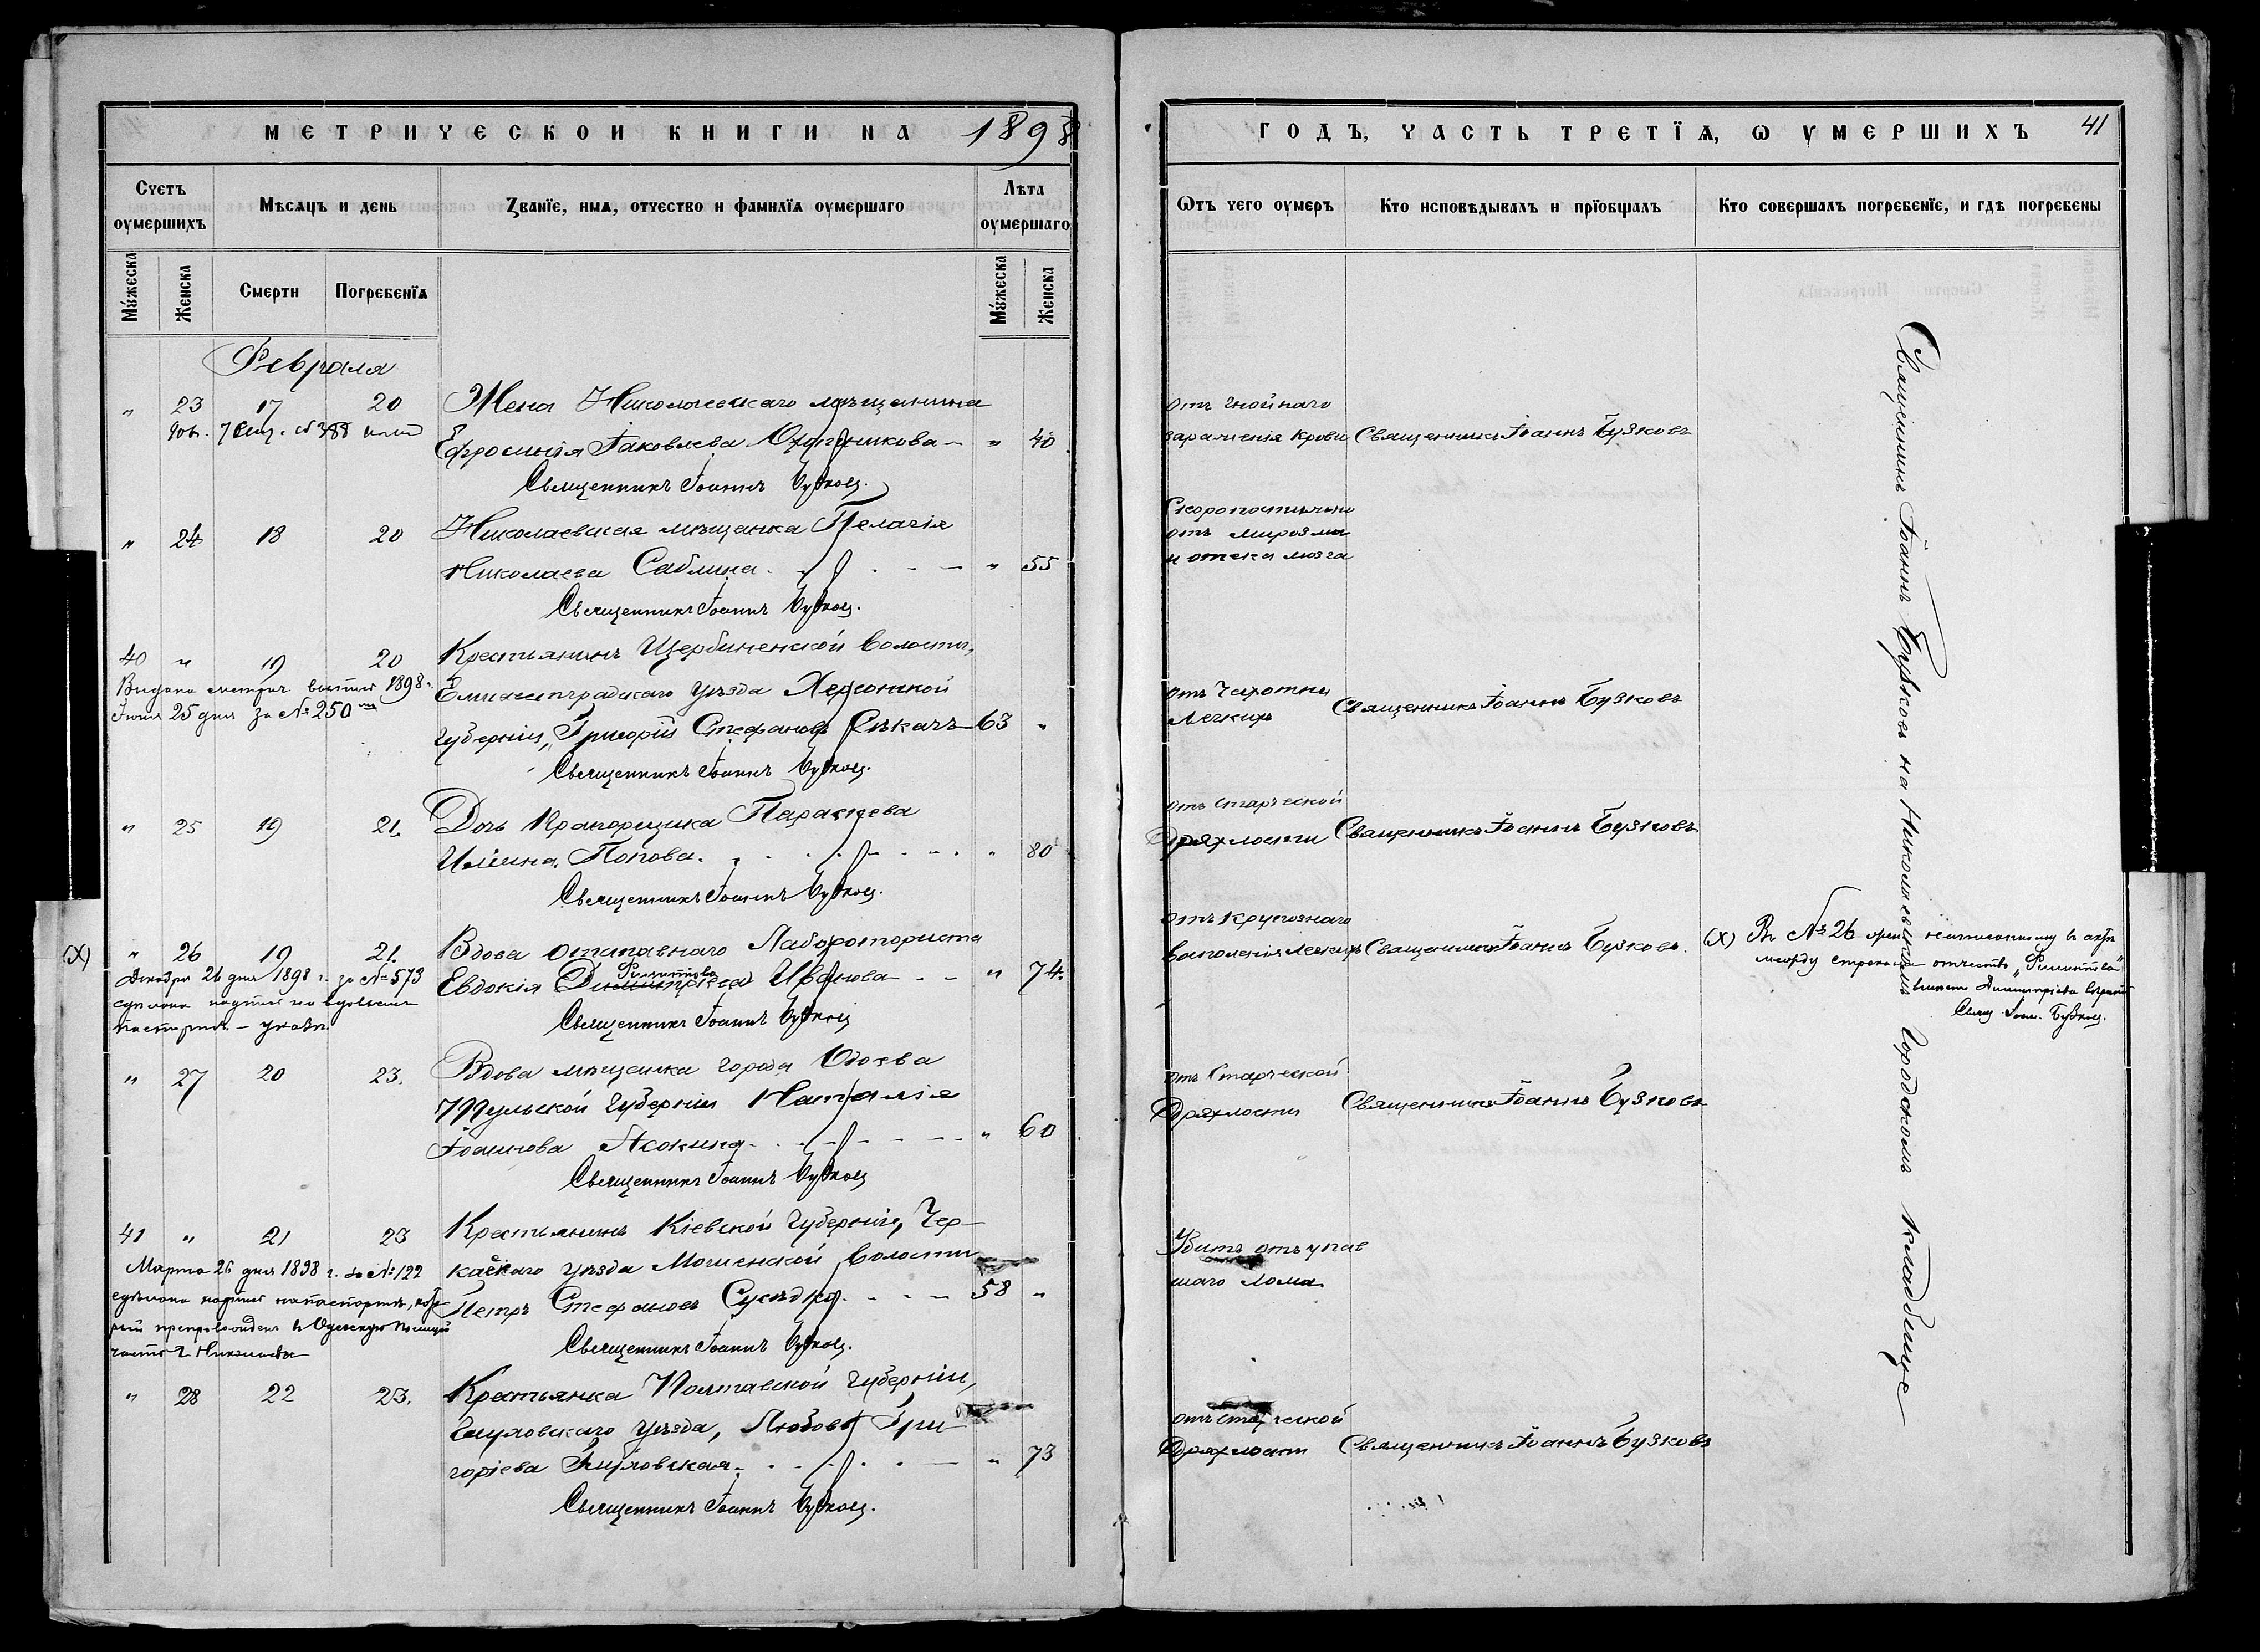 МЕТРИЧЕСКОИ КНИГИ НА 1898
Счетъ оумершихъ
Мѣсяцъ и день
Званїе, имя, отчество и фамилїя оумершаго
Лѣта оумершаго
Мꙋжеска
Женска
Смерти
Погребенїя
Мꙋжеска
Женска
Февраля
" 23 17 20 Жена Николаевскаго мѣщанина
Ефросинія Іаковлева " 40
Священникъ Іоаннъ Бузковъ.
" 24 18 20 Николаевская мѣщанка Пелагія
Николаева Саблина. " 55
Священникъ Іоаннъ Бузковъ.
40 " 19 20 Крестьянинъ Щербиненской волости,
Выдана метрич. 1898 г.
Елисаветградскаго уѣзда Херсонской
25 дня за № 250
губерніи, Григорій Стефановъ Сѣкачъ 63 "
Священникъ Іоаннъ Бузковъ.
" 25 19 21. Дочь Прапорщика Параскева
Иліина Попова. " 80
Священникъ Іоаннъ Бузковъ.
(X) " 26 19 21. Вдова отставнаго Лабороториста
Декабря 26 дня 1898 г. за № 573
Филиппова
Евдокія Димитріева Иванова " 74.
Священникъ Іоаннъ Бузковъ
" 27 20 23. Вдова мѣщанка города Одоева
Тульской губерніи Наталія
Іоаннова Асокина " 60
Священникъ Іоаннъ Бузковъ
41 " 21 23 Крестьянинъ Кіевской губерніи, Чер-
Марта 26 дня 1898 г. за № 122
каскаго уѣзда Мошенской волости
Петръ Стефановъ 58 "
Священникъ Іоаннъ Бузковъ.
" 28 22 23. Крестьянка Полтавской губерніи,
уѣзда, Любовь Гри-
горіева " 73
Священникъ Іоаннъ Бузковъ.
ГОДЪ, ЧАСТЬ ТРЕТЇЯ, Ѡ УМЕРШИХЪ 41
Ѿтъ чего оумеръ
Кто исповѣдывалъ и прїобщалъ
Кто совершалъ погребенїе, и гдѣ погребены
отъ гнойнаго
зараженія крови Священникъ Іоаннъ Бузковъ
Скоропостижно
отъ
и отека мозга
отъ чахотки
легкихъ Священникъ Іоаннъ Бузковъ
отъ старческой
дряхлости Священникъ Іоаннъ Бузковъ
отъ крупознаго
воспаленія легкихъ Священникъ Іоаннъ Бузковъ.
(X) Въ № 26 въ актѣ
между строками отчество „Филиппова"
вмѣсто Димитріева вѣрно
Свящ. Іоан. Бузковъ.
отъ старческой
дряхлости Священникъ Іоаннъ Бузковъ
Убитъ отъ упав
шаго лома
отъ старческой
дряхлости Священникъ Іоаннъ Бузковъ
Священникъ Іоаннъ Бузковъ на Николаевскомъ Городскомъ кладбище